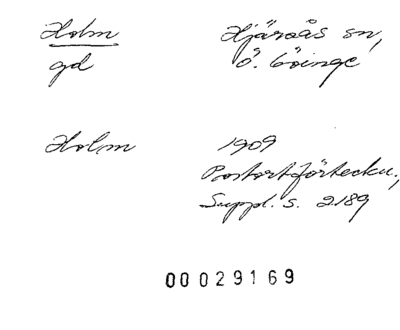 Holm Hjärsås sn,
gd Ö. Göinge
Holm 1909
Postortförteckn.,
Suppl. s. 2189
00029169